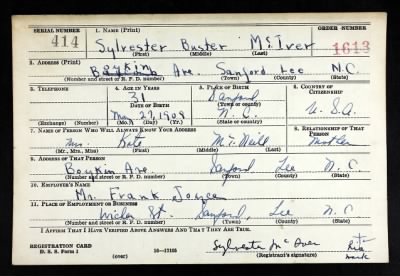 SERIAL NUMBER
1. NAME (Print)
ORDER NUMBER
414
Sylvester Buster McIver
1613
(First) (Middle) (Last)
2. ADDRESS (Print)
Boykin Ave. Sanford Lee N.C.
(Number and street or R. F. D. number) (Town) (County) (State)
3. TELEPHONE
4. AGE IN YEARS
5. PLACE OF BIRTH
6. COUNTRY OF CITIZENSHIP
31
Sanford
DATE OF BIRTH
(Town or county)
Mar 27, 1909
N.C.
U.S.A
(Exchange) (Number)
(Mo.) (Day) (Yr.)
(State or country)
7. NAME OF PERSON WHO WILL ALWAYS KNOW YOUR ADDRESS
8. RELATIONSHIP OF THAT PERSON
Mrs. Kate McNeill Mother
(Mr., Mrs., Miss) (First) (Middle) (Last)
9. ADDRESS OF THAT PERSON
Boykin Ave. Sanford Lee N.C.
(Number and street or R. F. D. number) (Town) (County) (State)
10. EMPLOYER'S NAME
Mr. Frank Joyce
11. PLACE OF EMPLOYMENT OR BUSINESS
St. Sanford, Lee N.C.
(Number and street or R. F. D. number) (Town) (County) (State)
I AFFIRM THAT I HAVE VERIFIED ABOVE ANSWERS AND THAT THEY ARE TRUE.
REGISTRATION CARD
D. S. S. Form 1
(over)
16—17105
Sylvester McIver
his
mark
(Registrant's signature)